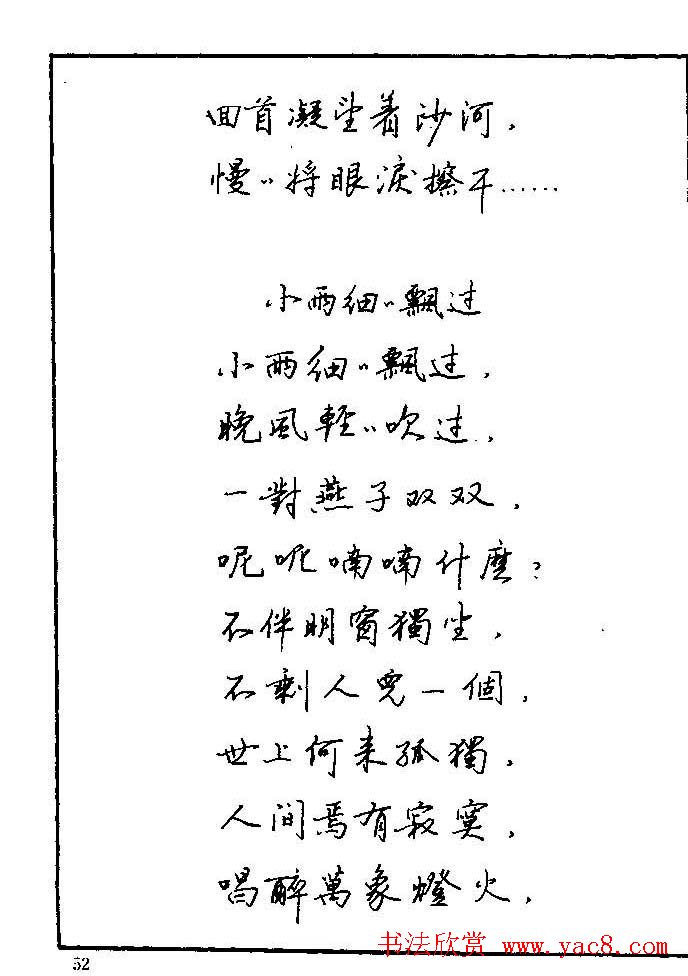 回首凝望着沙河，
慢〃将眼淚擦干……
小雨细〃飄过
小雨细〃飄过，
晚風輕〃吹过，
一對燕子双双，
呢呢喃喃什麽？
不伴明窗獨坐，
不剩人兒一個，
世上何来孤獨，
人间焉有寂寞，
唱醉萬象燈火，
52
书法欣赏 www.yac8.com